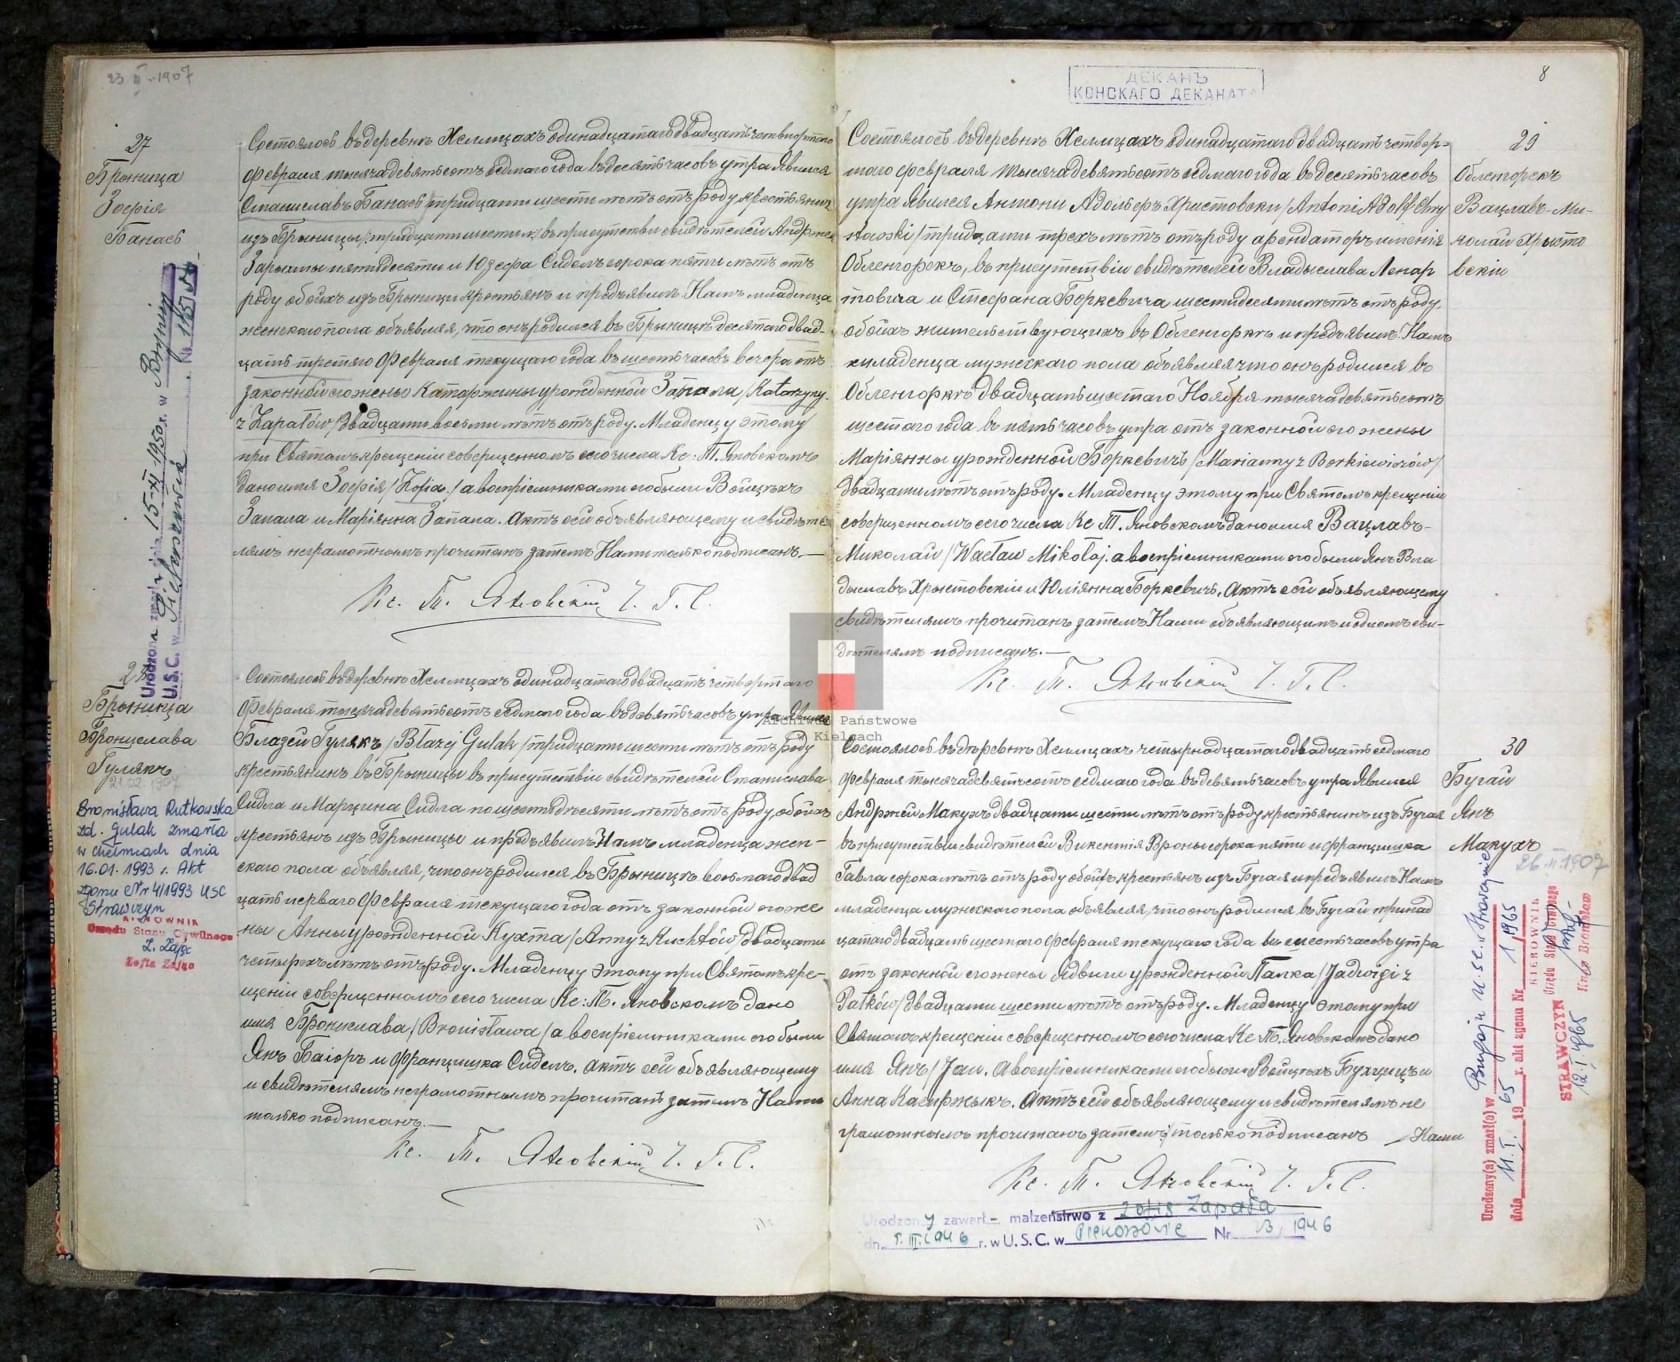 23 II 1907
27
Брыница
Зофія
Банась
Состоялось въ деревнѣ Хелмцахъ одинадцатаго двадцать четвертаго
февраля тысяча девятьсотъ седмаго года въ десять часовъ утра. Явился
Станиславъ Банась, тридцати шести лѣтъ отъ роду крестьянинъ
изъ Брыницы, въ присутствіи свидѣтелей Андржея
пятидесяти и Юзефа Сидель сорока пяти лѣтъ отъ
роду обоихъ изъ Брыницы крестьянъ и предъявилъ Намъ младенца
женскаго пола объявляя, что онъ родился въ Брыницѣ десятаго двад-
цать третяго февраля текущаго года въ шесть часовъ вечера отъ
законной его жены Катаржины урожденной Запала /Katarzyny
z Zapałów/ двадцати восьми лѣтъ отъ роду. Младенцу этому
при Святомъ крещеніи совершенномъ сего числа Кс: Т. Яновскомъ
дано имя Зофія /Zofia/ а воспріемниками его были Войцѣхъ
Запала и Маріянна Запала. Актъ сей объявляющему и свидѣте-
лямъ неграмотнымъ прочитанъ затемъ Нами только подписанъ.—
Кс. Т. Яновскій
U.S.C. w
15-XI 1950 r. w
28
Брыница
Брониславa
Гулякъ
21.02.1907
Bronisława Rutkowska
zd. Gulak zmarła
w Chełmcach dnia
16.01.1993 r. Akt
zgonu Nr 4/1993 USC
Strawczyn
KIEROWNIK
Urzędu Stanu Cywilnego
Z. Zając
Zofia Zając
Состоялось въ деревнѣ Хелмцахъ одинадцатаго двадцать четвертаго
февраля тысяча девятьсотъ седмаго года въ девять часовъ утра. Явился
Блазей Гулякъ /Błażej Gulak/ тридцати шести лѣтъ отъ роду
крестьянинъ въ Брыницы въ присутствіи свидѣтелей Станислава
Сидла и Марцина Сидла по шестьдесяти лѣтъ отъ роду обоихъ
крестьянъ изъ Брыницы и предъявилъ Намъ младенца жен-
скаго пола объявляя, что онъ родился въ Брыницѣ восьмаго двад
цать перваго февраля текущаго года отъ законной его же
ны Анны урожденной Кухта /Anny z Kuchtów/ двадцати
четырехъ лѣтъ отъ роду. Младенцу этому при Святомъ кре-
щеніи совершенномъ сего числа Кс: Т. Яновскомъ дано
имя Бронислава /Bronisława/ а воспріемниками его были
Янъ Багоръ и Францишка Сидель. Актъ сей объявляющему
и свидѣтелямъ неграмотнымъ прочитанъ затемъ Нами
только подписанъ.—
Кс. Т. Яновскій
ДЕКАНЪ
КОНСКАГО ДЕКАНАТА
8
29
Обленгорекъ
Вацлавъ-Ми-
колай Хрысто
вскій
Состоялось въ деревнѣ Хелмцахъ одинадцатаго двадцать четвер-
таго февраля тысяча девятьсотъ седмаго года въ десять часовъ
утра. Явился Антони Адольфъ Христовски /Antoni Adolf Chry
stowski/ тридцати трехъ лѣтъ отъ роду арендаторъ имѣнія
Обленгорекъ, въ присутствіи свидѣтелей Владыслава Ленар
товича и Стефана Боркевича шестидесяти лѣтъ отъ роду
обоихъ жительствующихъ въ Обленгоркѣ и предъявилъ Намъ
младенца мужескаго пола объявляя что онъ родился въ
Обленгоркѣ двадцать шестаго Ноября тысяча девятьсотъ
шестаго года въ пять часовъ утра отъ законной его жены
Маріянны урожденной Боркевичъ /Marianny z Borkiewiczów/
двадцати лѣтъ отъ роду. Младенцу этому при Святомъ крещеніи
совершенномъ сего числа Кс Т. Яновскомъ дано имя Вацлавъ-
Миколай /Wacław Mikołaj. а воспріемниками его были Янъ Вла
дыславъ Хрыстовскій и Юліянна Боркевичъ. Актъ сей объявляющему
свидѣтелямъ прочитанъ затемъ Нами объявляющимъ и однимъ сви-
дѣтелямъ подписанъ.—
Кс. Т. Яновскій
Archiwum Państwowe
w Kielcach
30
Бугай
Янъ
Макухъ
26 II 1907
Состоялось въ деревнѣ Хелмцахъ четырнадцатаго двадцать седмаго
февраля тысяча девятьсотъ седмаго года въ девять часовъ утра. Явился
Андржей Макухъ двадцати шести лѣтъ отъ роду крестьянинъ изъ Бугая
въ присутствіи свидѣтелей Викентія Вроны сорока пяти и Францишка
Гавла сорока лѣтъ отъ роду обоихъ крестьянъ изъ Бугая и предъявилъ Намъ
младенца мужескаго пола объявляя, что онъ родился въ Бугаѣ тринад
цатаго двадцать шестаго февраля текущаго года въ шесть часовъ утра
отъ законной его жены Ядвиги урожденной Палка /Jadwigi z
Pałków/ двадцати шести лѣтъ отъ роду. Младенцу этому при
Святомъ крещеніи совершенномъ сего числа Кс Т. Яновскомъ дано
имя Янъ /Jan. А воспріемниками его были Войцѣхъ
Анна Каспржыкъ. Актъ сей объявляющему и свидѣтелямъ не
грамотнымъ прочитанъ затемъ только подписанъ — Нами
Кс. Т. Яновскій
Urodzony zawarł małżeństwo z Zofią Zapała
dn. III 1946 r. w U.S.C. w Piekoszowie Nr 23/1946
Urodzony(a) zmarł(a) w Bugaju
dnia 11.I.1965 r. akt zgonu Nr 1/1965
STRAWCZYN
12.I.1965
KIEROWNIK
Urzędu Stanu Cywilnego